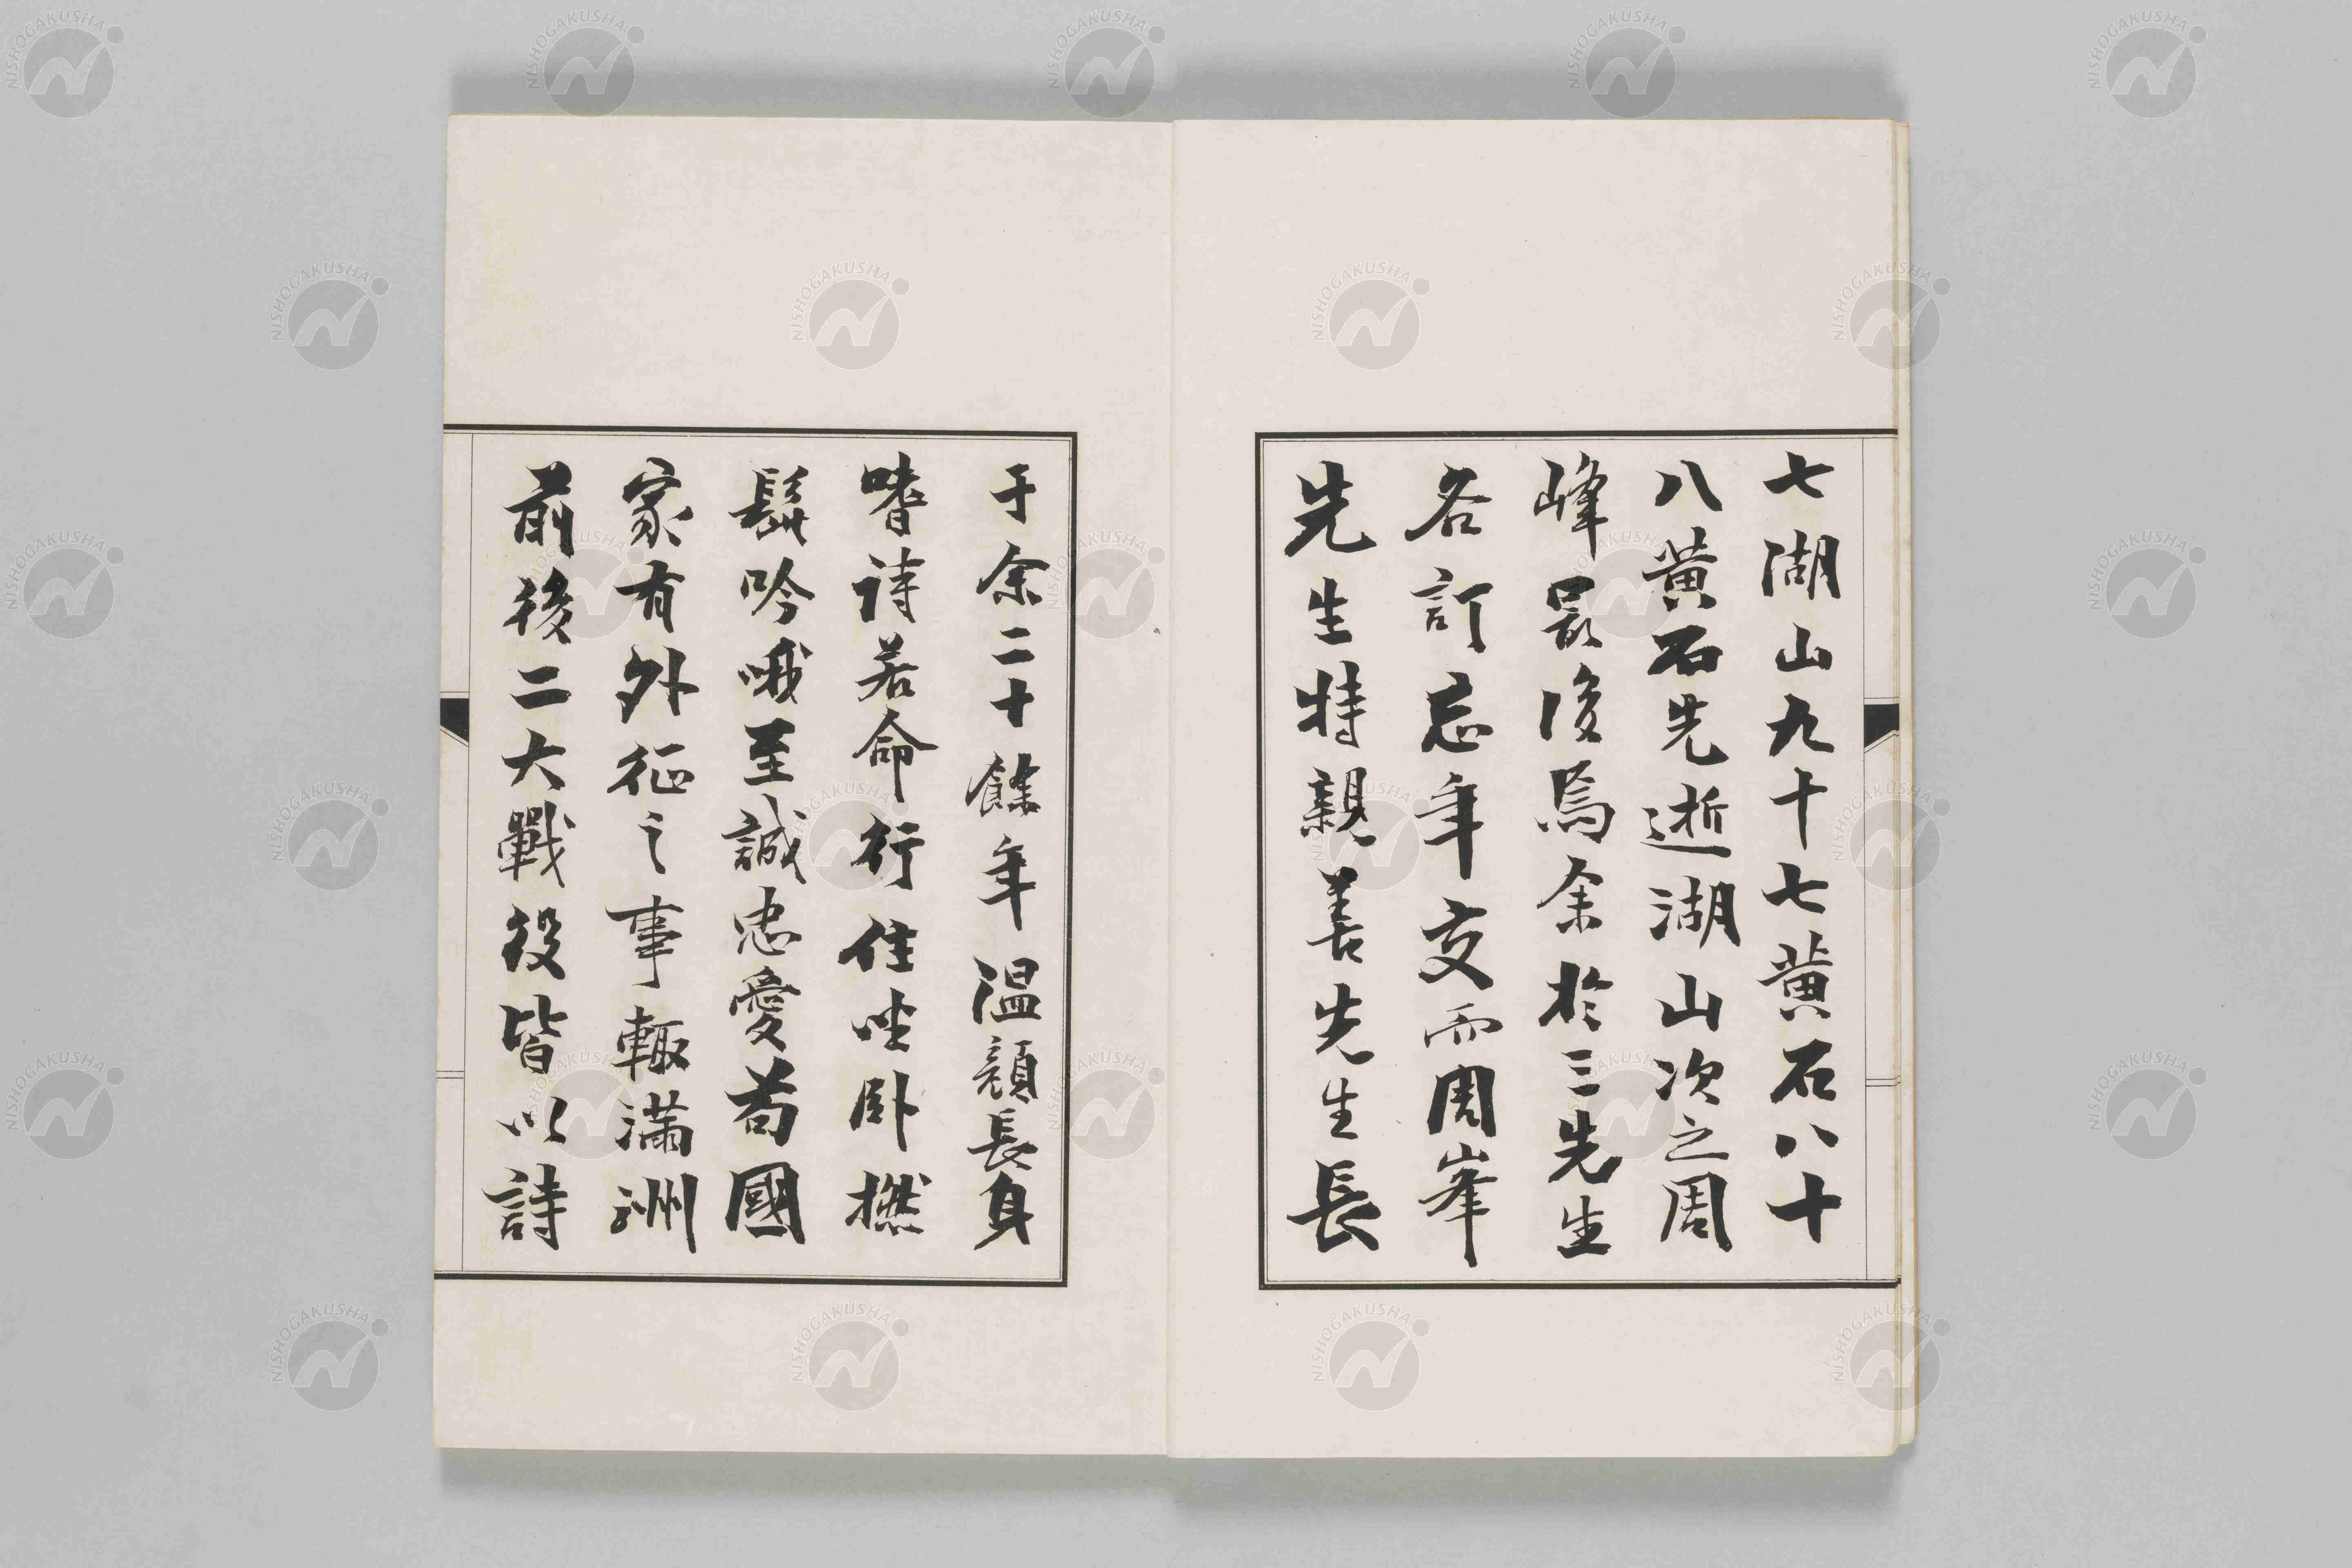 七湖山九十七黄石八十
八黄石先逝湖山次之周
峰最後焉余於三先生
各訂忘年交而周峯
先生特親善先生長
于余二十餘年温顔長身
嗜詩若命行住坐臥撚
鬚吟哦至誠忠愛苟國
家有外征之事輙満洲
前後二大戰役皆以詩
NISHOGAKUSHA